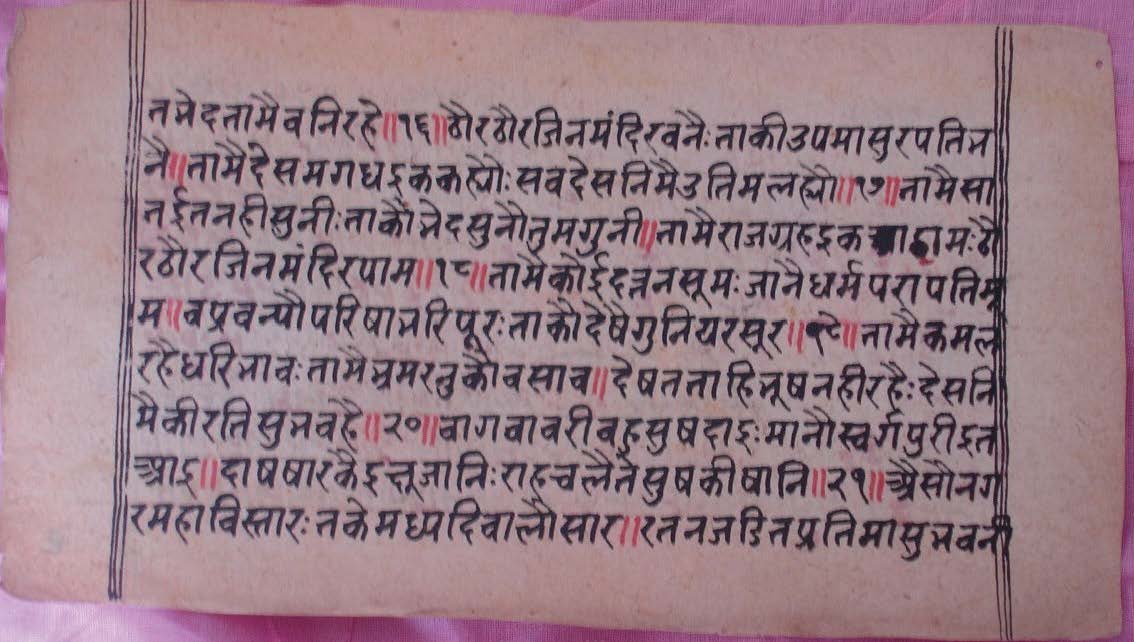 तमेदतामैवनिरहे॥१६॥ठौरठौरजिनमंदिरवनैःताकीउपमासुरपतिभ
नै॥तामैदेसमगधइककह्योःसवदेसनिमैउतिमलह्यौ॥१७॥तामैसा
तईतनहीसुनीःताकौभेदसुनौतुमगुनी॥तामैराजग्रहइक
रठौरजिनमंदिरपाम॥१८॥तामैकोईदत्रनसूमःजानैधर्मपरापतिभू
म॥वप्रवन्यौपरिषाभरिपूरःताकौदेषैगुनियरसूर॥१९॥तामैकमल
रहैधरिभावःतामैभ्रमरनुकौवसाव॥देषतताहिभूषनहीरहैःदेसनि
मैकीरतिसुभवहै॥२०॥वागवावरीवहुसुषदाइःमानौस्वर्गपुरीइत
आइ॥दाषषारकैइक्षूजानिःराहचलैतेसुषकीषानि॥२१॥अैसौनग
रमहाविस्तारःतकेमध्यदिवालौसार॥रतनजडितप्रतिमासुभवनी